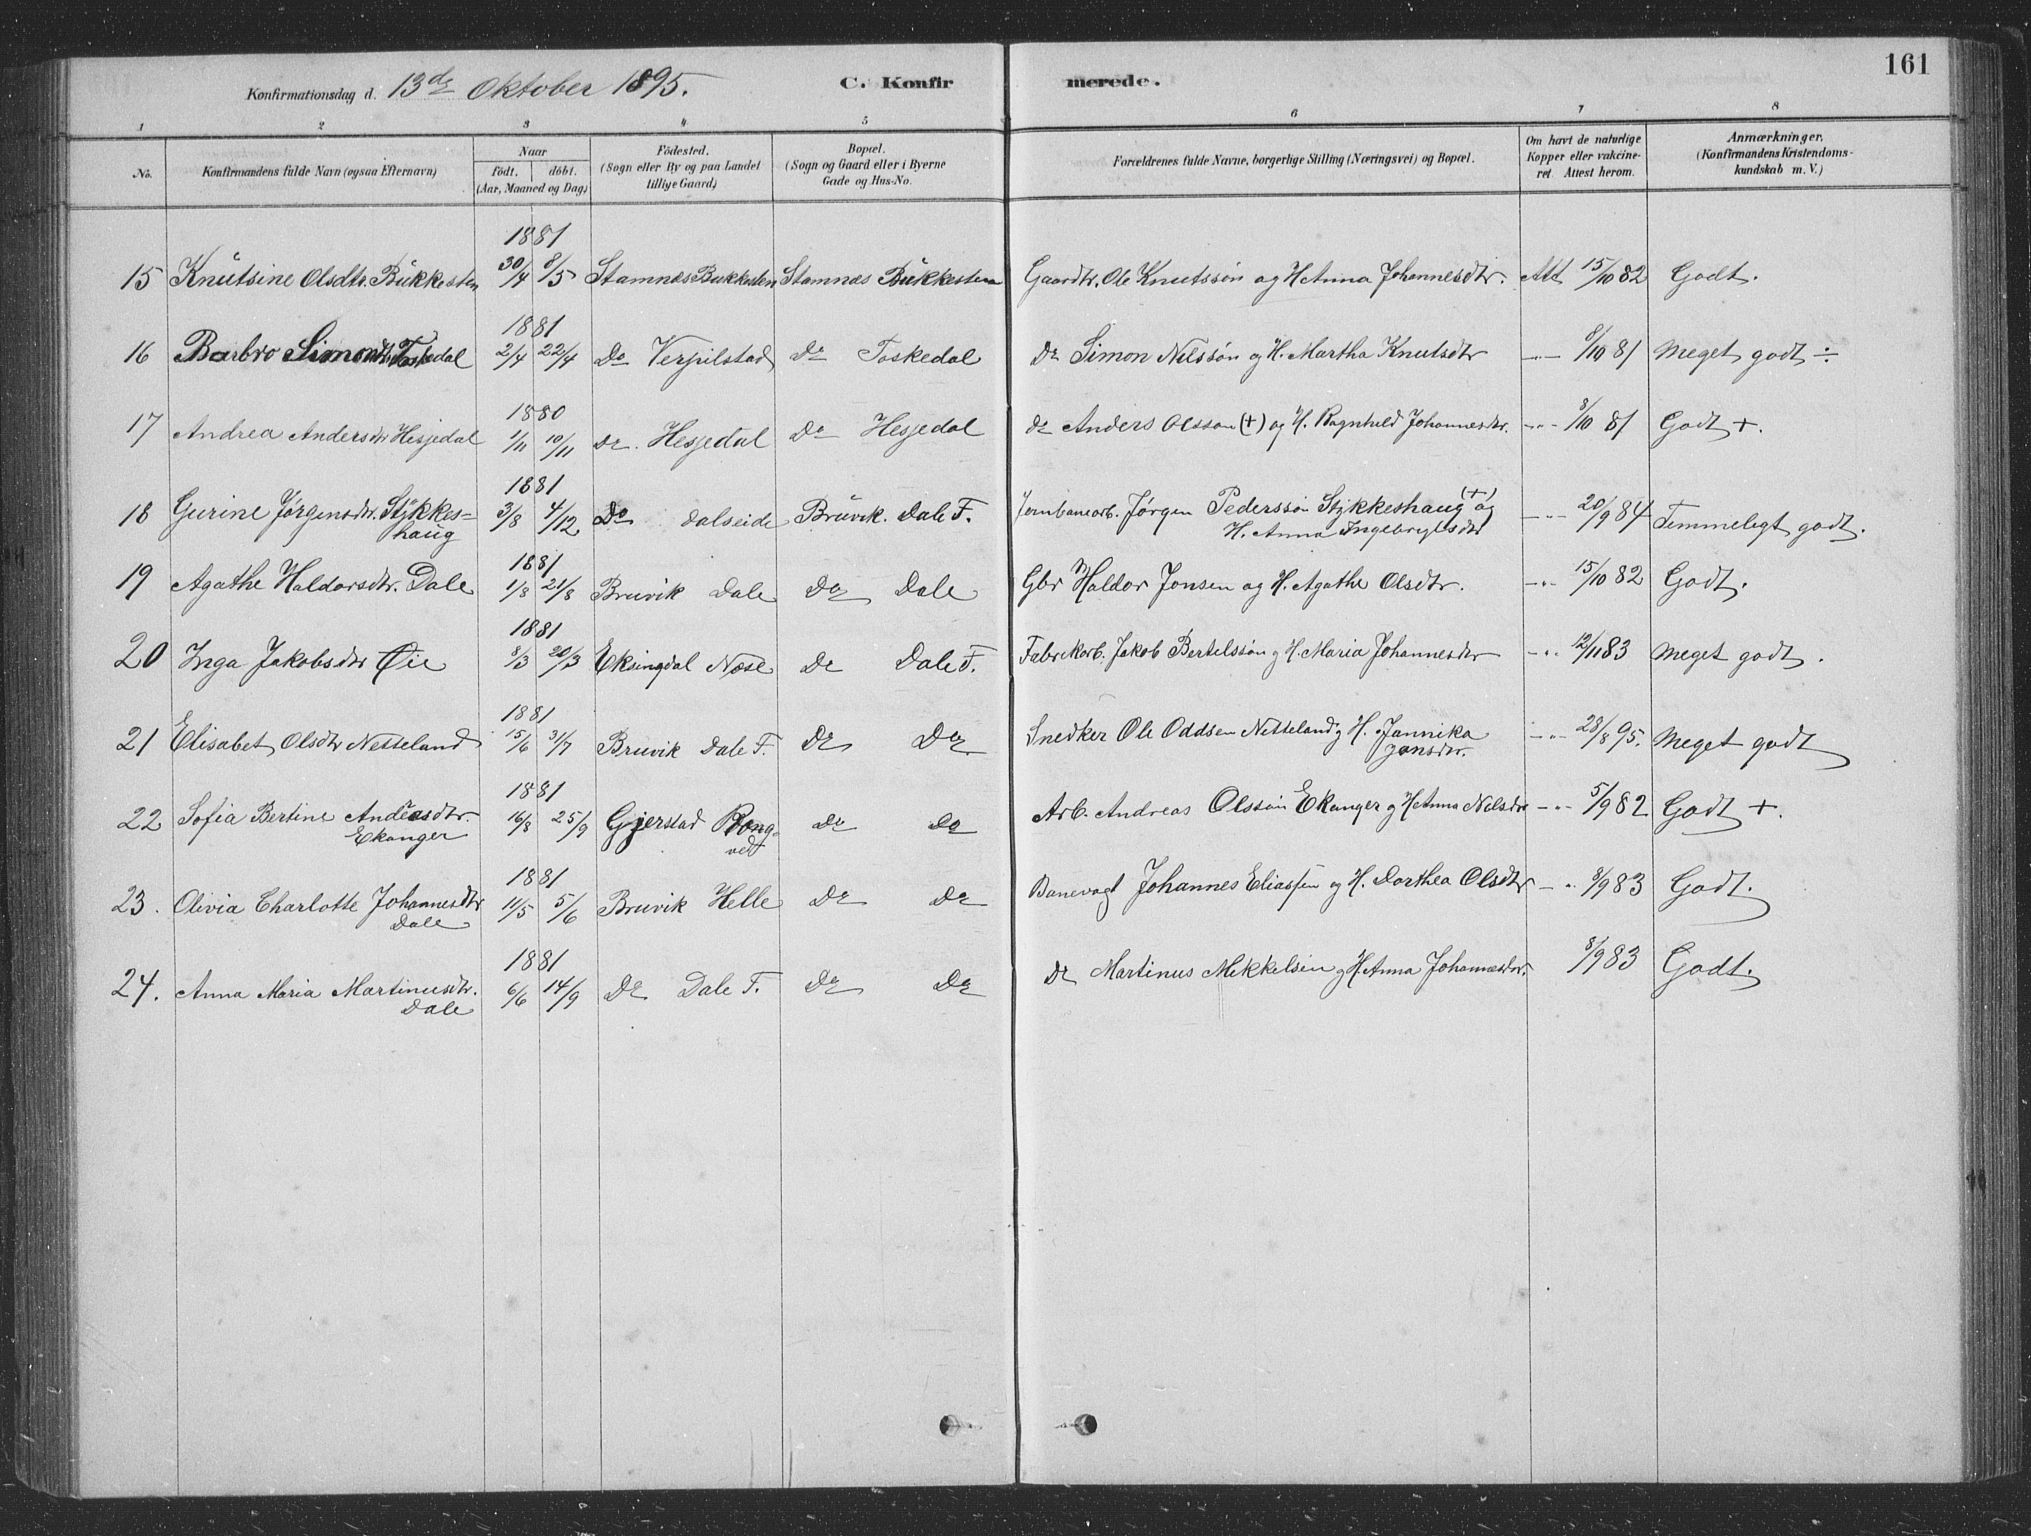 161
Konfirmationsdag d. 13de Oktober 1895. C. Konfirmerede.
1 2 3 4 5 6 7 8
No. Konfirmandens fulde Navn (ogsaa Efternavn) Naar født. døbt. (Aar, Maaned og Dag) Fødested. (Sogn eller By og paa Landet tillige Gaard) Bopæl. (Sogn og Gaard eller i Byerne Gade og Hus-No. Forældrenes fulde Navne, borgerlige Stilling (Næringsvei) og Bopæl. Om havt de naturlige Kopper eller vakcineret. Attest herom. Anmærkninger. (Konfirmandens Kristendomskundskab m. V.)
1881
15 Knutsine Olsdtr. Bukkesten 30/4 8/5 Stamnes Bukkesten Stamnes Bukkesten Gaardbr. Ole Knutssøn og H. Anna Johannesdtr. Att 15/10 82 Godt.
1881
16 Barbro Simonsdtr Toskedal 2/4 22/4 Do Verpilstad Do Toskedal Do Simon Nilssøn og H. Martha Knutsdtr -"- 8/10 81 Meget godt ÷
1880
17 Andrea Andersdtr Hesjedal 1/11 10/11 Do. Hesjedal Do Hesjedal Do Anders Olsson (+) og H. Ragnhild Johannesdtr. -"- 8/10 81 Godt +.
1881
18 Gurine Jørgensdtr. Stykkes= 3/8 4/12 Do Dalseide Bruvik. Dale F. Jernbanearb. Jørgen Pederssøn Stykkeshaug (+) og -"- 20/9 84 Temmeligt godt.
haug H. Anna Ingebrigtsdtr
1881
19 Agathe Haldorsdtr. Dale 1/8 21/8 Bruvik Dale Do Dale Gbr Haldor Jonsen og H. Agathe Olsdtr. -"- 15/10 82 Godt.
1881
20 Inga Jakobsdtr Øie 8/3 20/3 Eksingdal Næse Do Dale F. Fabrikarb. Jakob Bertelssøn og H. Maria Johannesdtr -"- 12/11 83 Meget godt.
1881
21 Elisabet Olsdtr Nesseland 15/6 3/7 Bruvik Dale F. Do Do Snedker Ole Oddsen Nesseland og H. Jannika -"- 28/8 95. Meget godt
Jonsdtr.
1881
22 Sofia Bertine Andersdtr. 16/8 25/9 Gjerstad Rong= Do Do Arb. Andreas Olssøn Ekanger og H. Anna Nilsdtr -"- 5/9 82 Godt +.
Ekanger ved
1881
23. Olivia Charlotte Johannesdtr 11/5 5/6 Bruvik Helle Do Do Banevogt Johannes Eliassen og H. Dorthea Olsdtr -" 8/9 83 Godt.
Dale
1881
24. Anna Maria Martinusdtr. 6/6 14/9 Do Dale F. Do Do Do Martinus Mikkelsen og H. Anna Johannesdtr. 8/9 83 Godt.
Dale